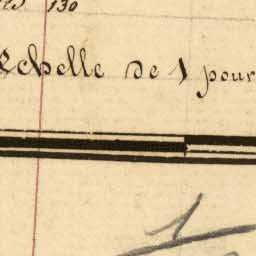 130
Echelle de 1 pour
1